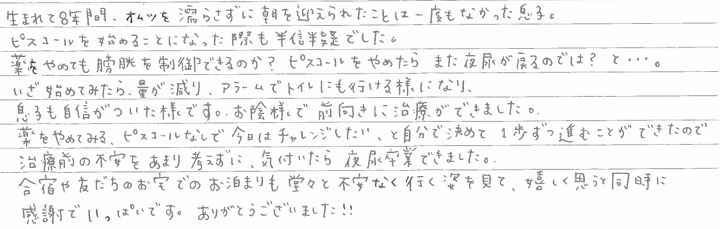 生まれて8年間、オムツを濡らさずに朝を迎えられたことは一度もなかった息子。
ピスコールを始めることになった際も半信半疑でした。
薬をやめても膀胱を制御できるのか？ ピスコールをやめたら また夜尿が戻るのでは？ と…。
いざ始めてみたら、量が減り、アラームでトイレにも行ける様になり、
息子も自信がついた様です。お陰様で 前向きに治療ができました。
薬をやめてみる、ピスコールなしで今日はチャレンジしたい、と自分で決めて 1歩ずつ進むことができたので
治療前の不安をあまり考えずに、気付いたら 夜尿卒業できました。
合宿や友だちのお宅でのお泊まりも堂々と不安なく行く姿を見て、嬉しく思うと同時に
感謝でいっぱいです。 ありがとうございました!!